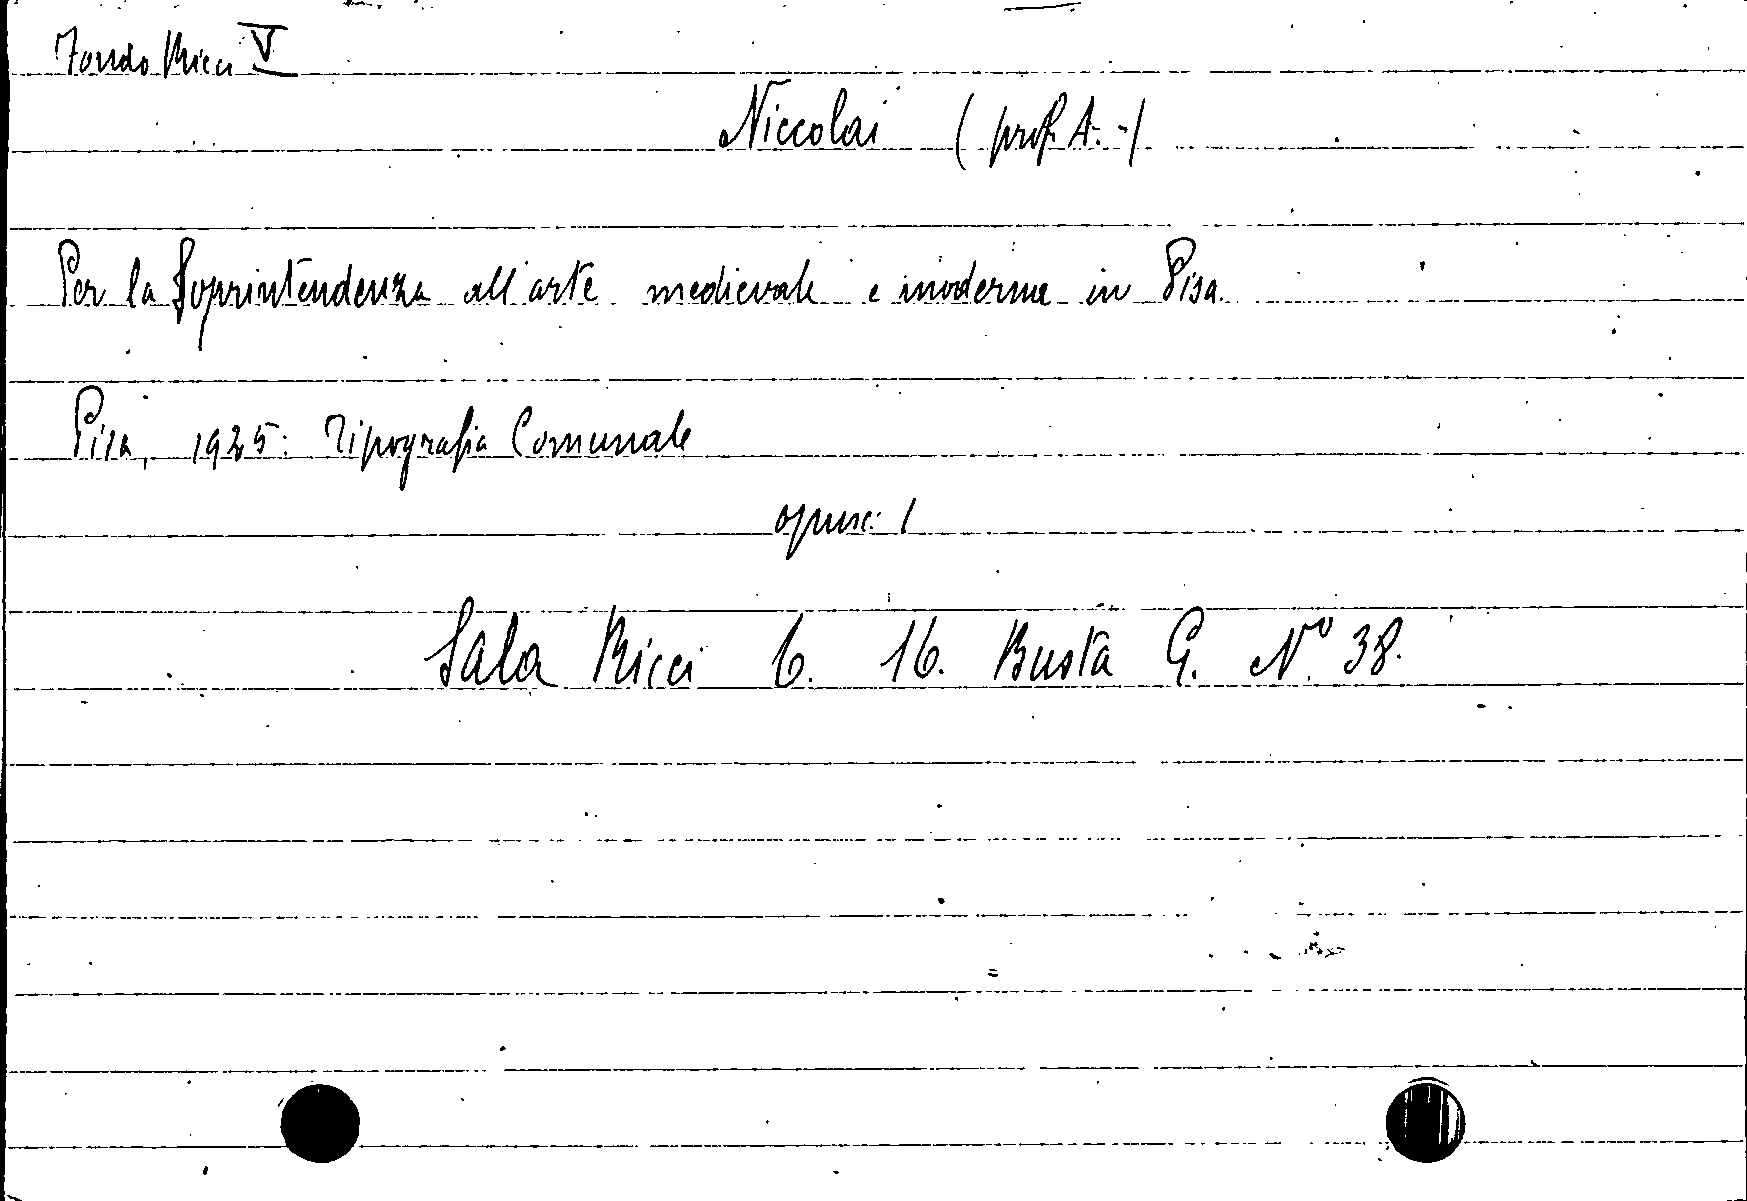 Fondo Ricci V
Niccolai (prof. A.-)
Per la Soprintendenza all'arte medievale e moderna in Pisa.
Pisa, 1925. Tipografia Comunale
opusc. 1
Sala Ricci 6. 16. Busta G. N° 38.